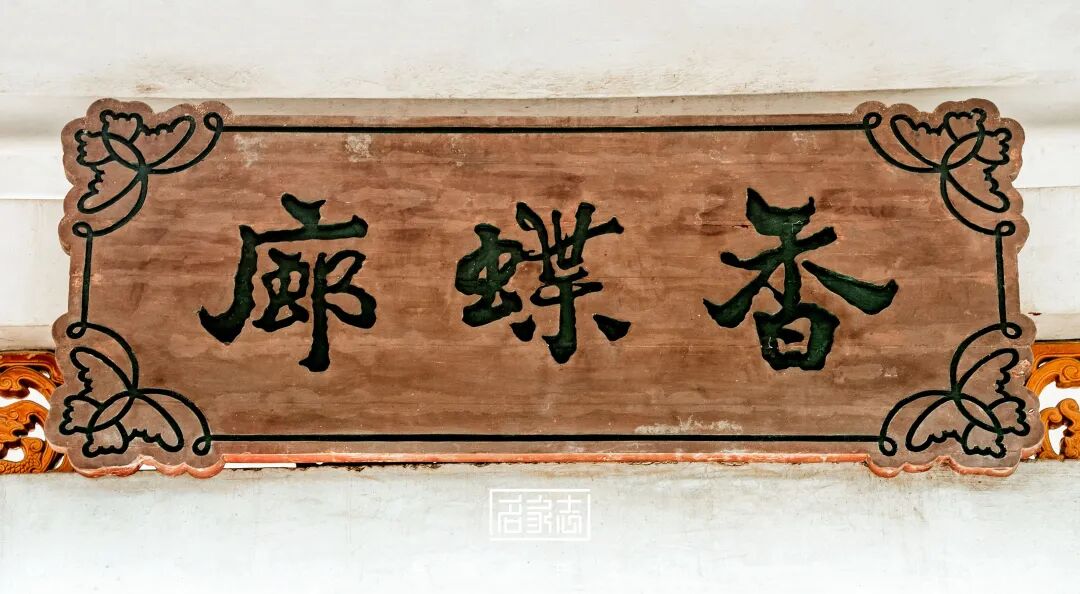 香蝶廊
名家志